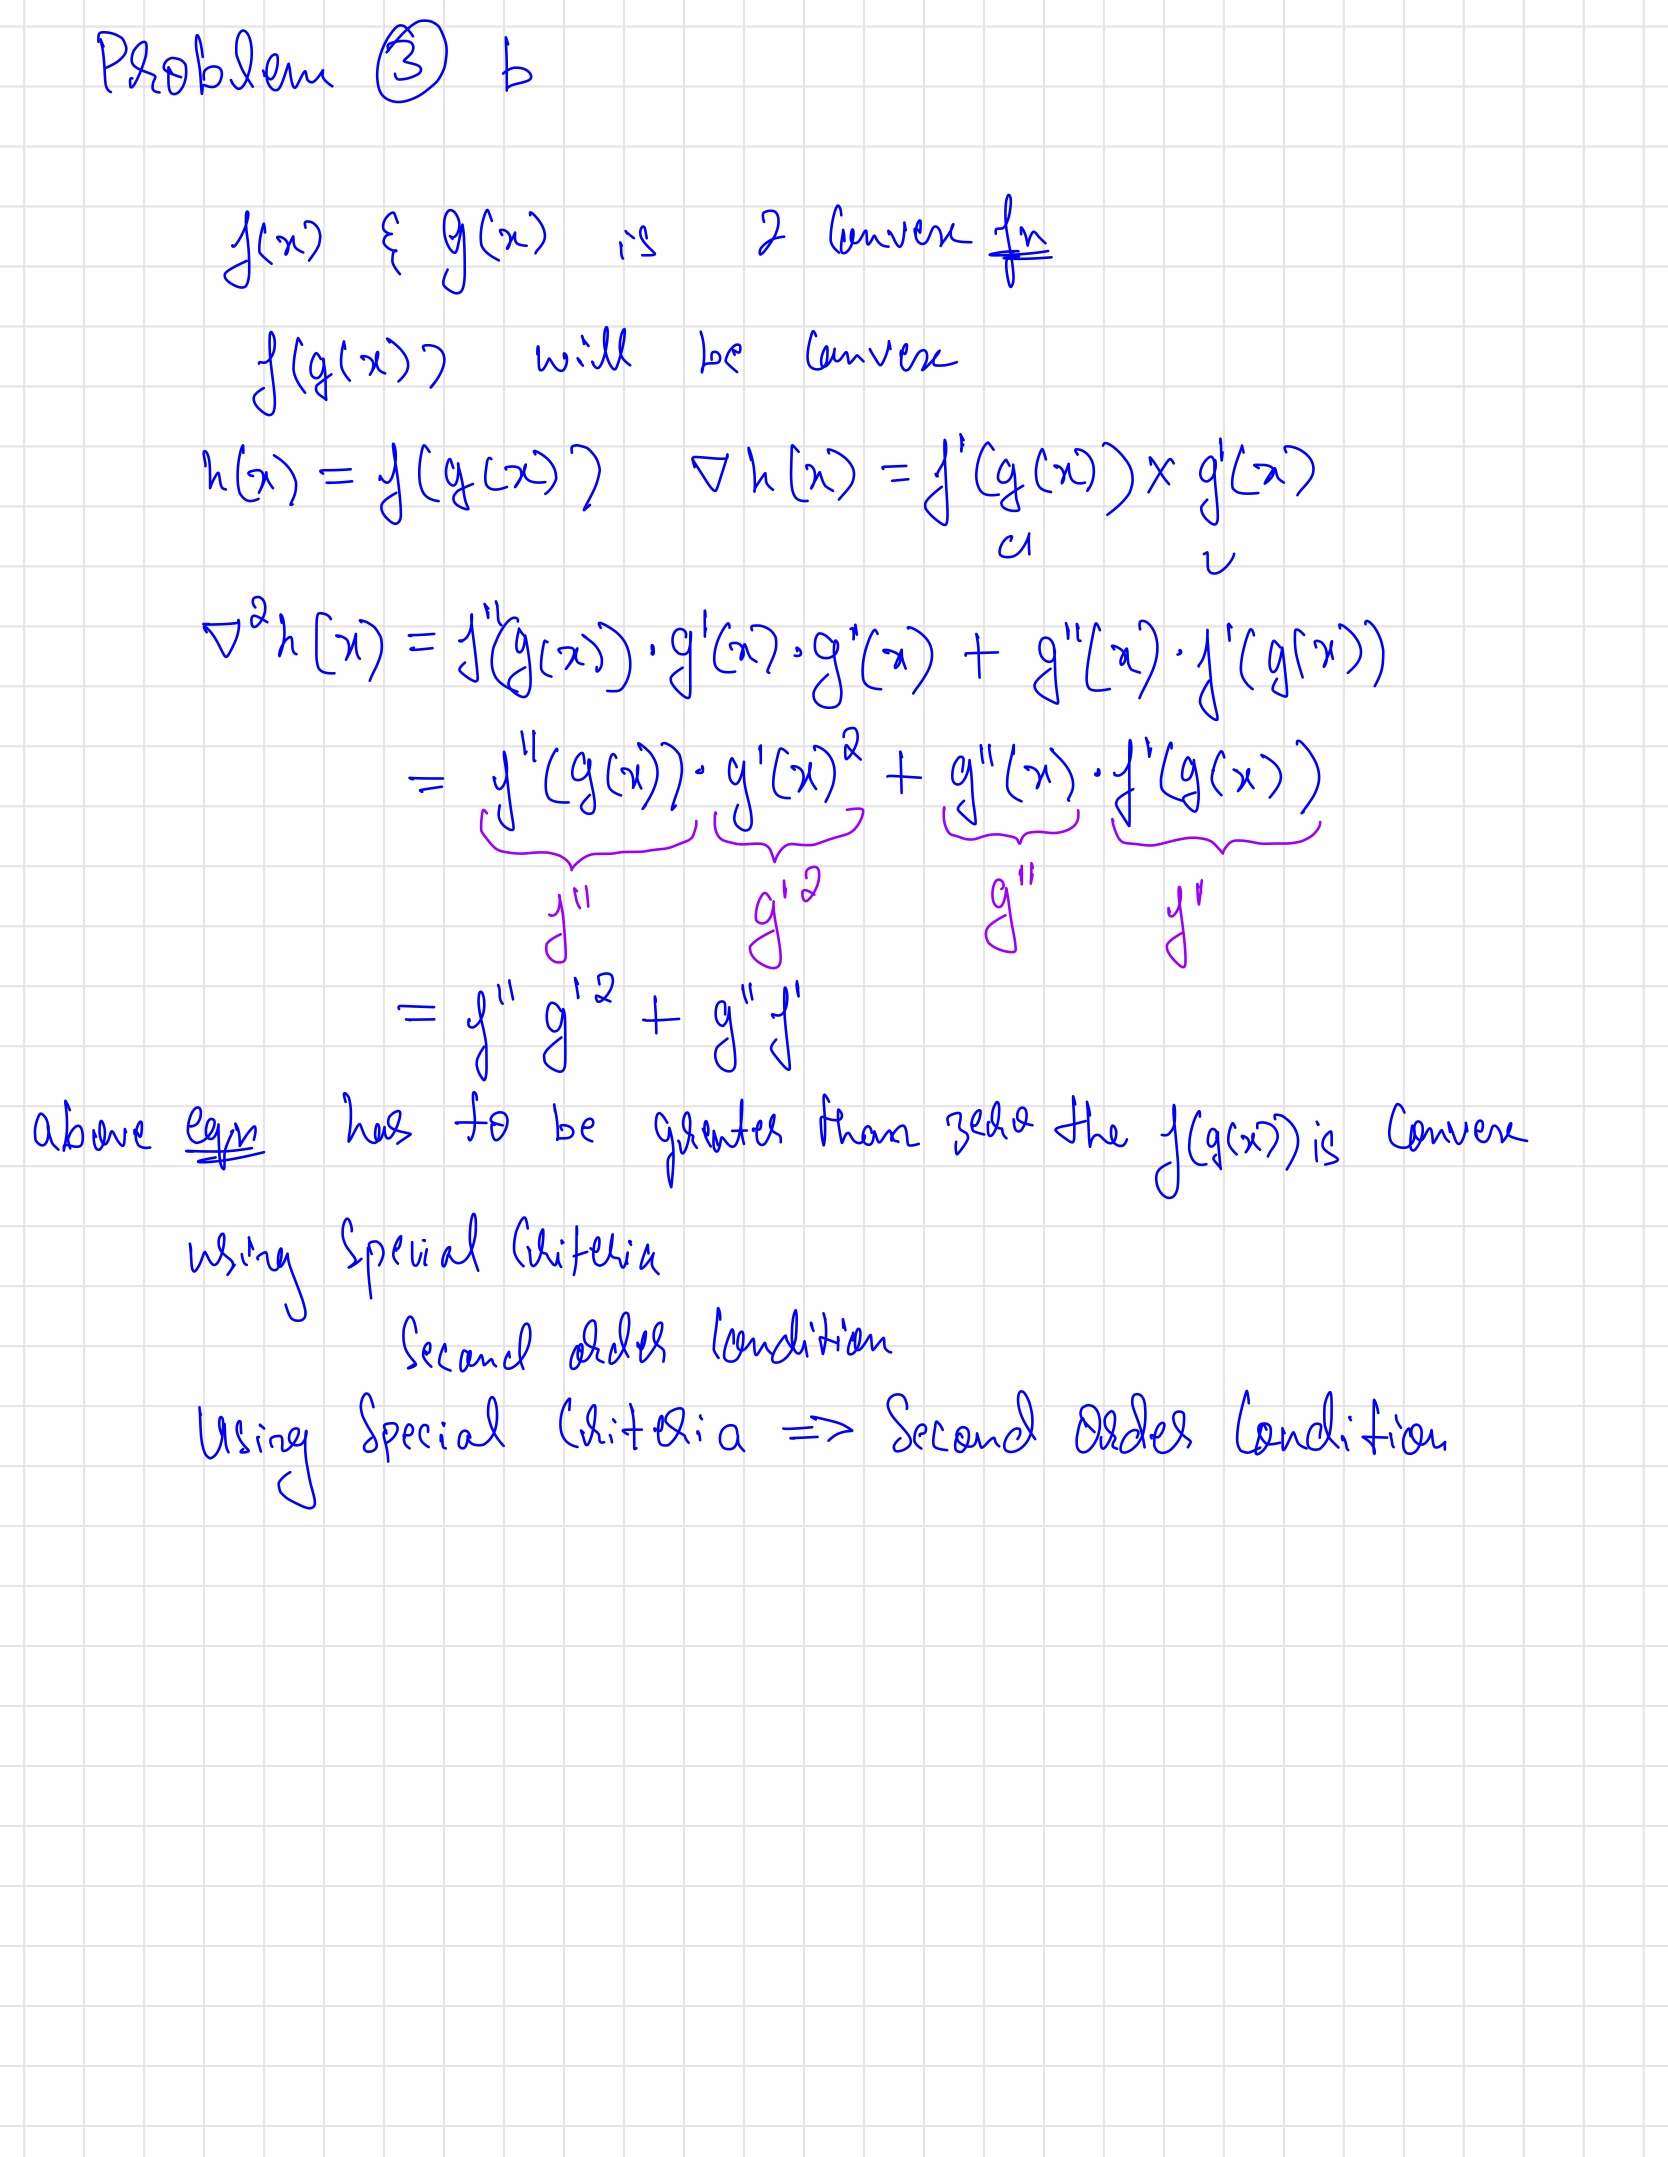 Problem ③ b
f(x) & g(x) is 2 Convex fn
f(g(x)) will be Convex
h(x) = f(g(x)) ∇h(x) = f'(g(x)) × g'(x)
u v
∇²h(x) = f''(g(x)) · g'(x) · g'(x) + g''(x) · f'(g(x))
= f''(g(x)) · g'(x)² + g''(x) · f'(g(x))
f'' g'² g'' f'
= f'' g'² + g'' f'
above eqn has to be greater than zero the f(g(x)) is Convex
using Special Criteria
Second order Condition
Using Special Criteria => Second Order Condition